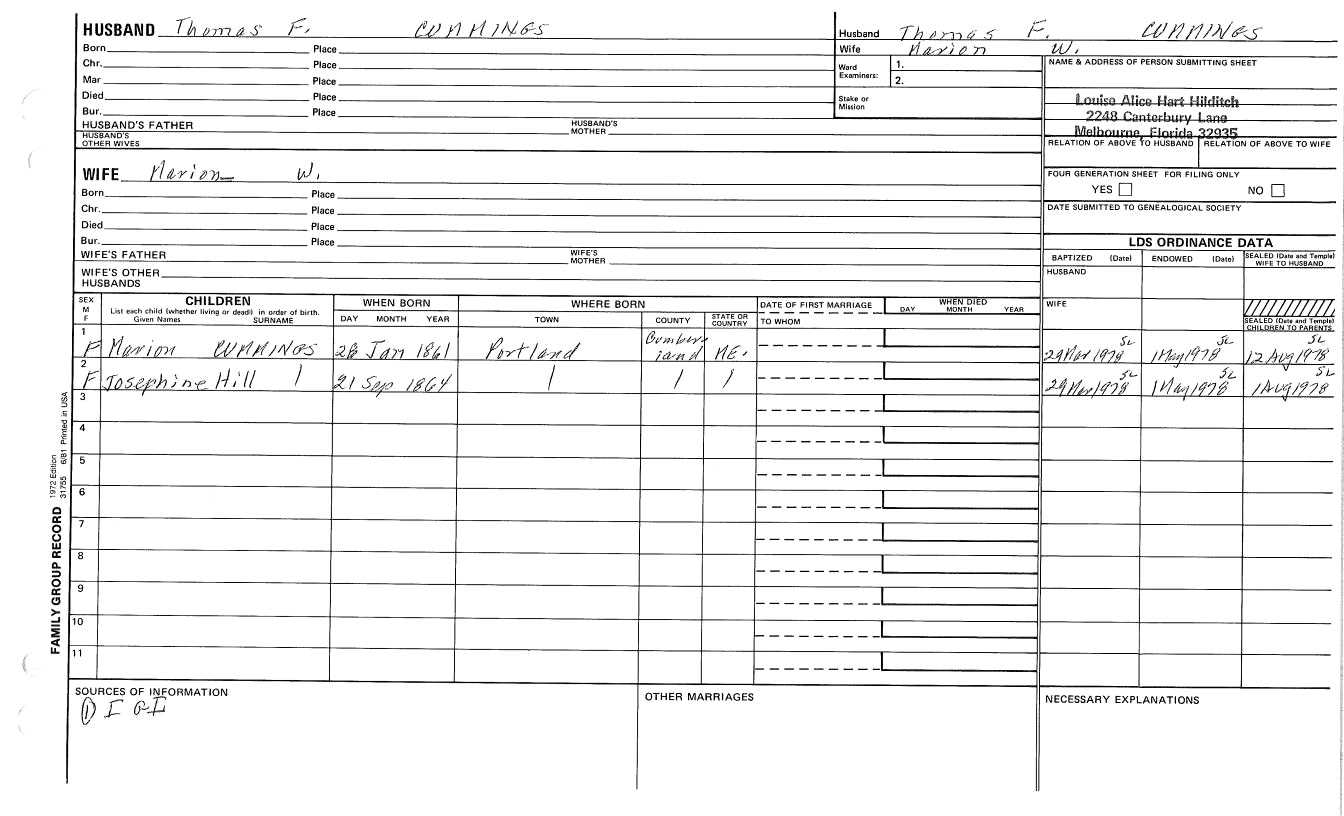 HUSBAND Thomas F. CUMMINGS
Born Place
Chr. Place
Mar Place
Died Place
Bur. Place
HUSBAND'S FATHER HUSBAND'S MOTHER
HUSBAND'S OTHER WIVES
Husband Thomas F. CUMMINGS
Wife Marion W.
Ward Examiners: 1.
2.
Stake or Mission
NAME & ADDRESS OF PERSON SUBMITTING SHEET
Louise Alice Hart Hilditch
2248 Canterbury Lane
Melbourne, Florida 32935
RELATION OF ABOVE TO HUSBAND RELATION OF ABOVE TO WIFE
FOUR GENERATION SHEET FOR FILING ONLY
YES NO
DATE SUBMITTED TO GENEALOGICAL SOCIETY
WIFE Marion W.
Born Place
Chr. Place
Died Place
Bur. Place
WIFE'S FATHER WIFE'S MOTHER
WIFE'S OTHER HUSBANDS
LDS ORDINANCE DATA
BAPTIZED (Date) ENDOWED (Date) SEALED (Date and Temple) WIFE TO HUSBAND
HUSBAND
WIFE
SEALED (Date and Temple) CHILDREN TO PARENTS
SEX M F
CHILDREN
List each child (whether living or dead) in order of birth.
Given Names SURNAME
WHEN BORN
DAY MONTH YEAR
WHERE BORN
TOWN COUNTY STATE OR COUNTRY
DATE OF FIRST MARRIAGE
TO WHOM
WHEN DIED
DAY MONTH YEAR
1 F Marion CUMMINGS 28 Jan 1861 Portland Cumberland ME. 29 Mar 1978 SL 1 May 1978 SL 12 Aug 1978 SL
2 F Josephine Hill 21 Sep 1864 29 Mar 1978 SL 1 May 1978 SL 1 Aug 1978 SL
3
4
5
6
7
8
9
10
11
FAMILY GROUP RECORD 1972 Edition 31755 6/81 Printed in USA
SOURCES OF INFORMATION
① IGI
OTHER MARRIAGES
NECESSARY EXPLANATIONS